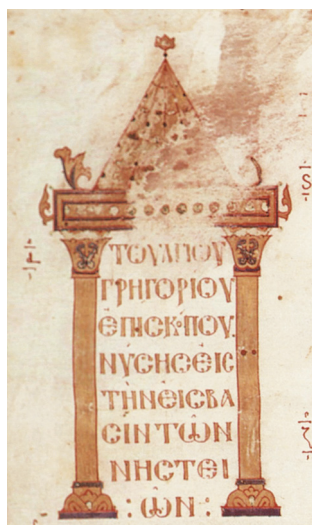 ΤΟΥΑΓΙΟΥ
ΓΡΗΓΟΡΙΟΥ
ΕΠΙΣΚΟΠΟΥ
ΝΥΣΗΣΕΙΣ
ΤΗΝΕΙΣΒΑ
ΣΙΝΤΩΝ
ΝΗΣΤΕΙ
:ΩΝ: